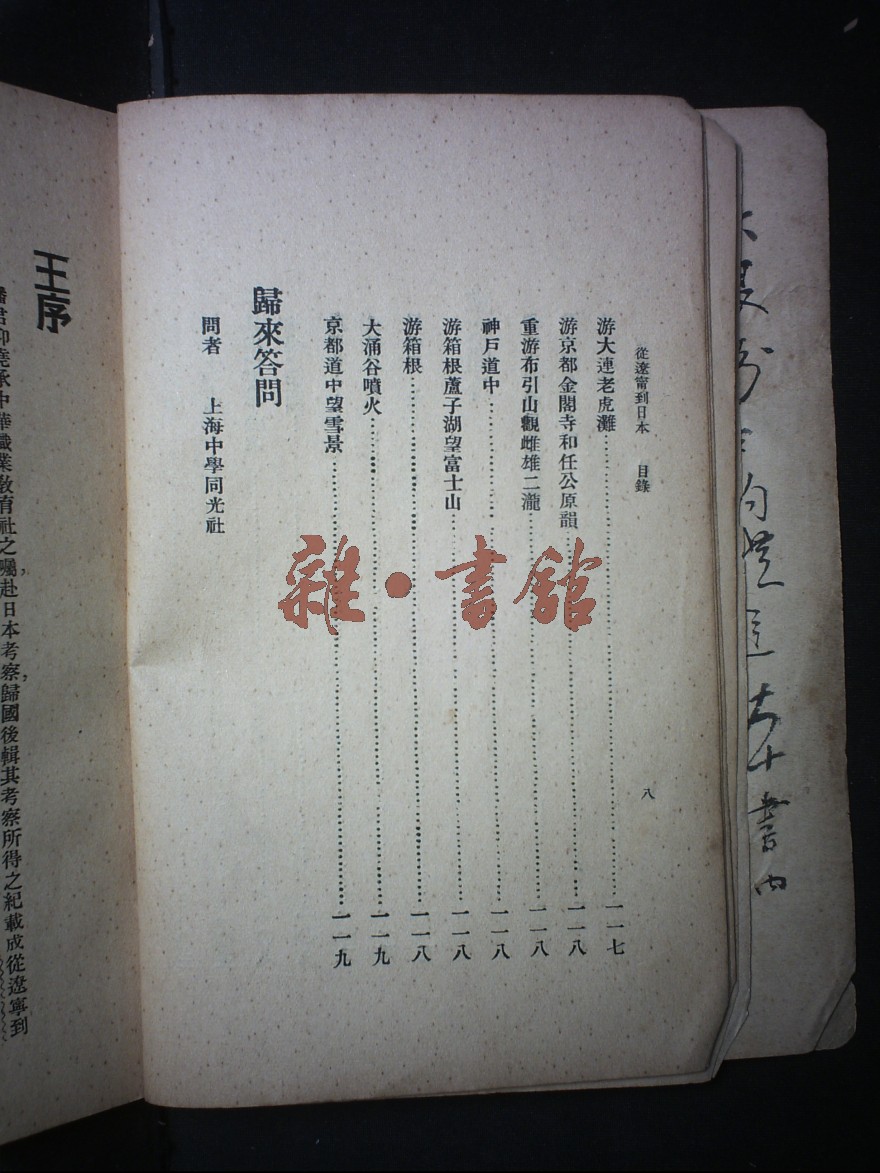 從遼甯到日本　目錄
八
游大連老虎灘……一一七
游京都金閣寺和任公原韻……一一八
重游布引山觀雌雄二瀧……一一八
神戶道中……一一八
游箱根蘆子湖望富士山……一一八
游箱根……一一八
大涌谷噴火……一一九
京都道中望雪景……一一九
歸來答問
問者　上海中學同光社
王序
潘君仰堯承中華職業教育社之囑，赴日本考察，歸國後輯其考察所得之紀載成從遼寧到
雜·書館
書內